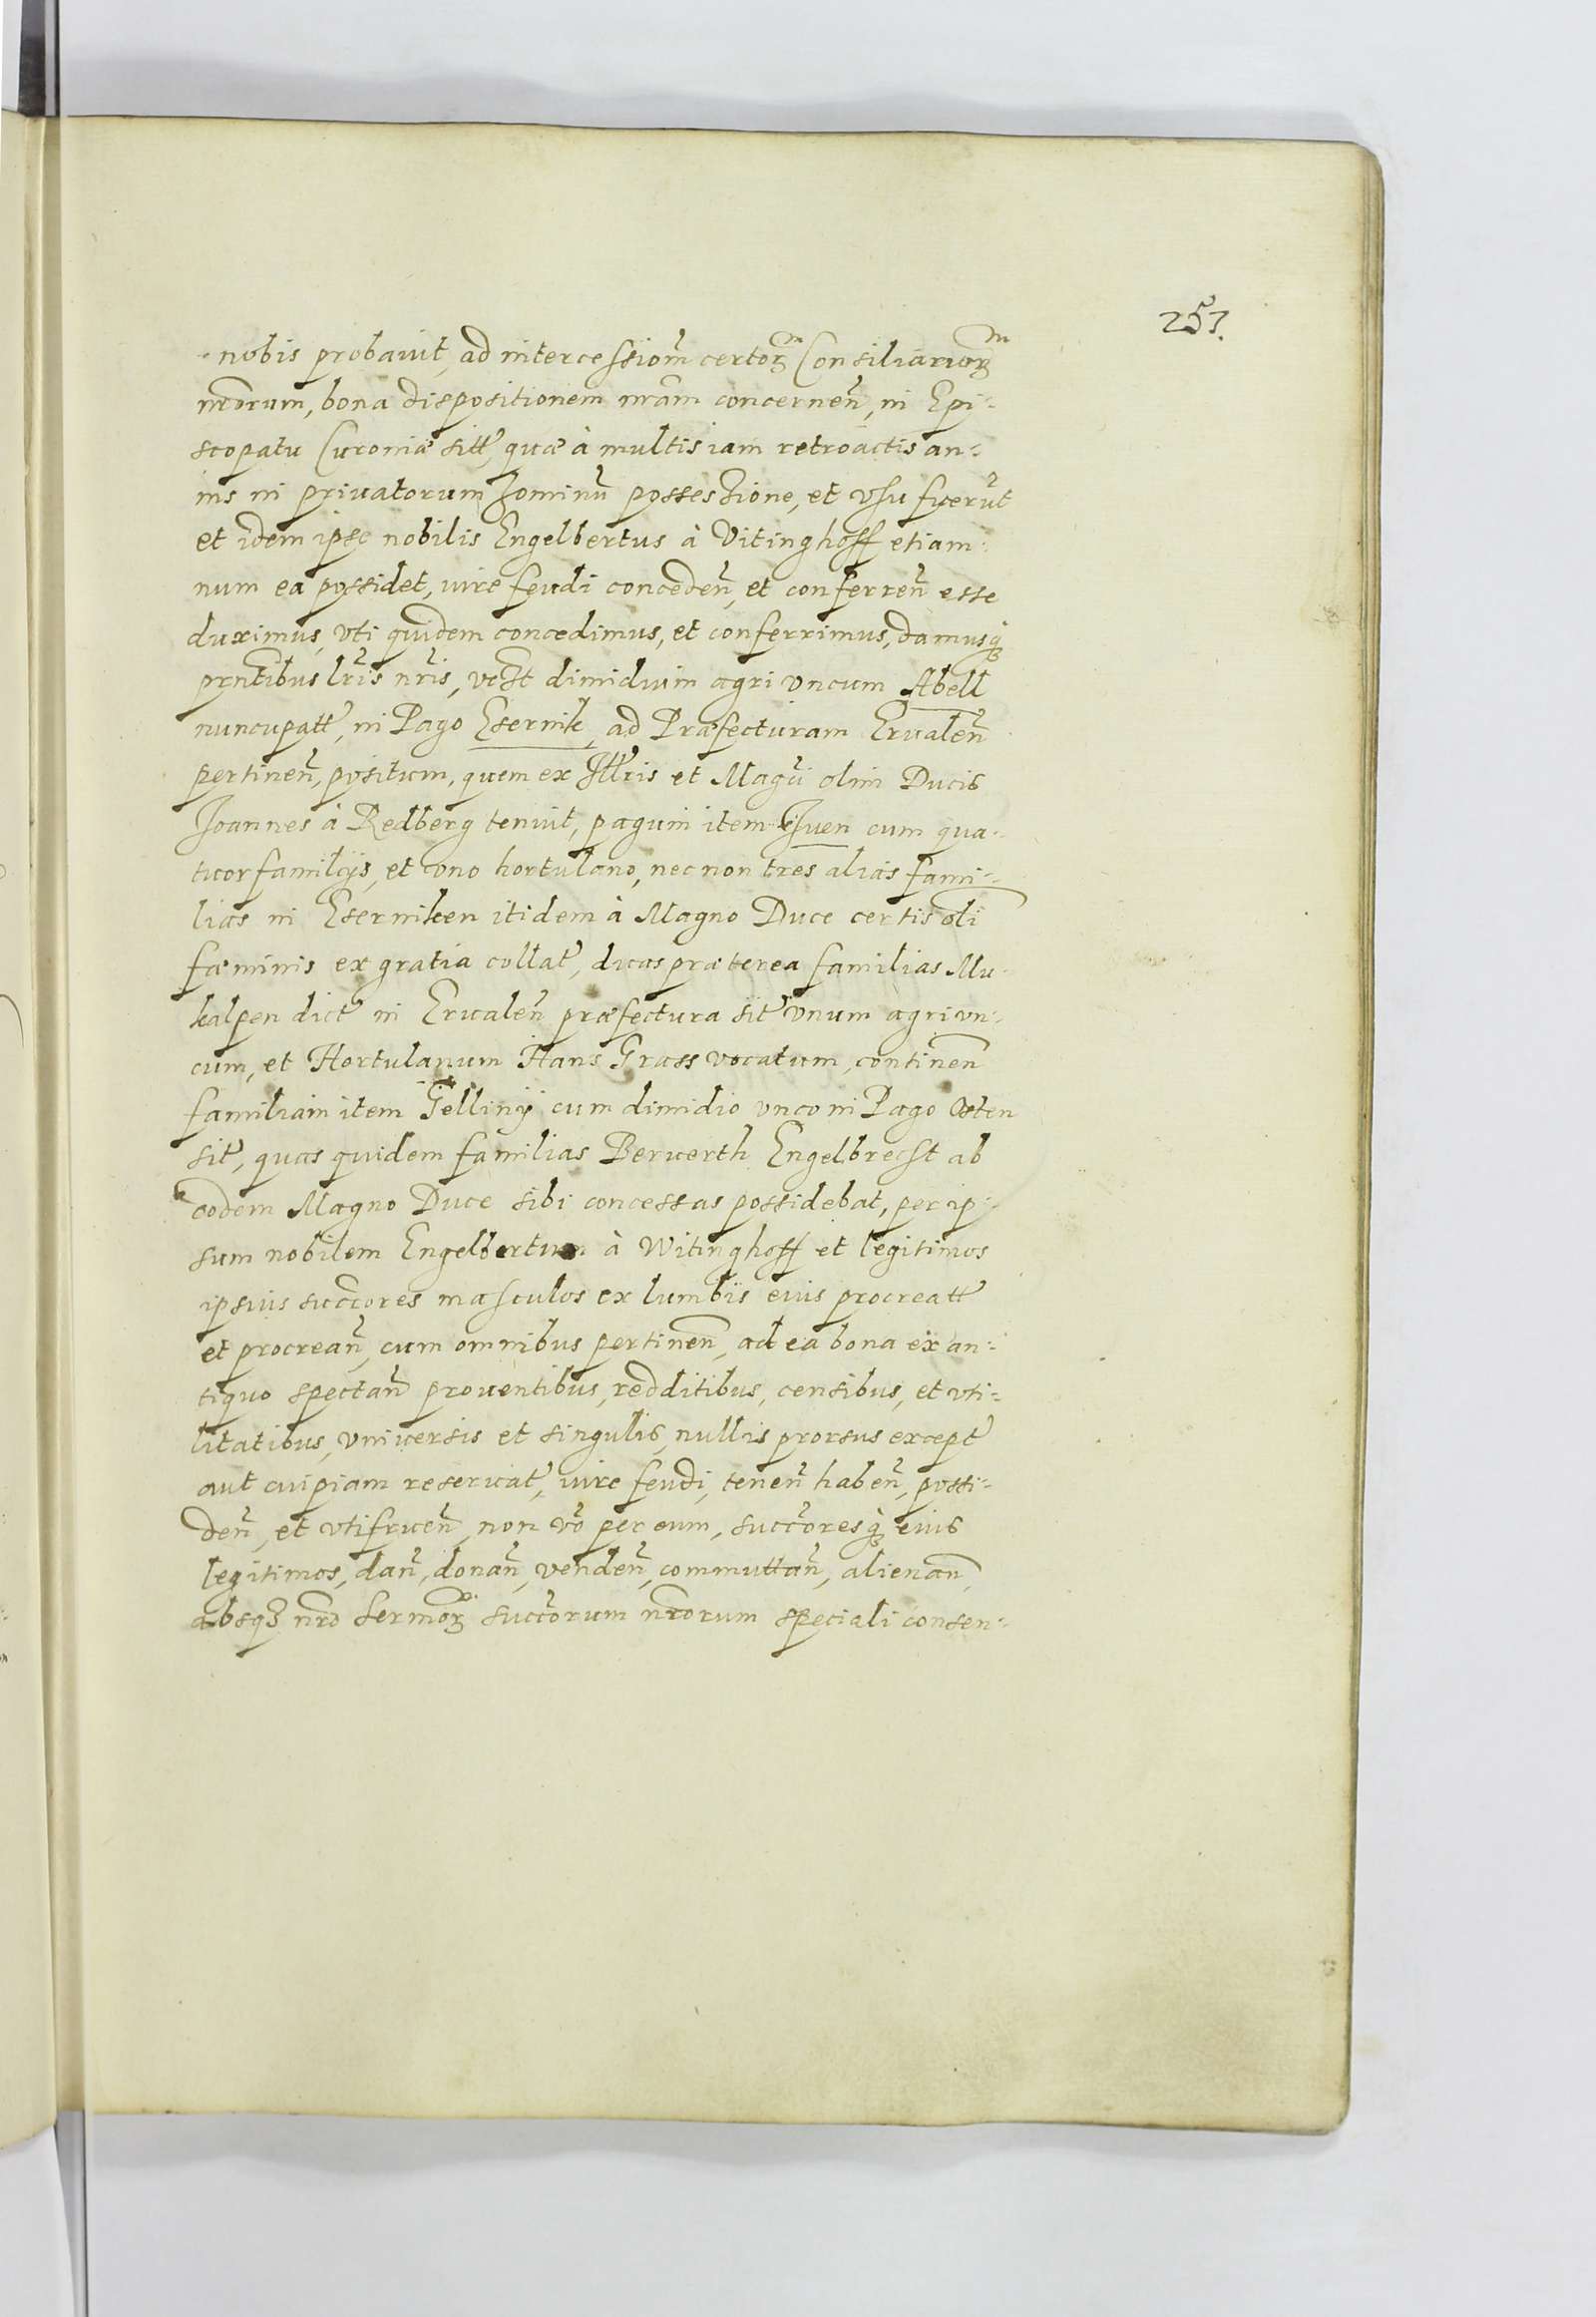 253.
nobis probauit, ad intercessiom̃ certorꝫ Consiliariorꝫ
nr̃orum, bona dispositionem nr̃am concernen̄, in Epi-
scopatu Curoniæ sitt̃, quæ à multis iam retroactis an-
nis in priuatorum hominū possessione, et vsu fuerūt
et idem ipse nobilis Engelbertus à Vitinghoff etiam-
num ea possidet, iure feudi conceden̄, et conferren̄ esse
duximus, vti quidem concedimus, et conferrimus, damusqꝫ
prn̄tibus lr̃is nr̃is, dimidium agri vncum Abell
nuncupatt̃, in Pago Esernik, ad Præfecturam Erualen̄
pertinen̄, positum, quem ex Illr̃is et Magñi olim Ducis
Joannes à Redberg tenuit, pagum item Juen cum qua-
tuor familijs, et vno hortulano, nec non tres alias fami-
lias in Eserniken itidem à Magno Duce certis olī
fæminis ex gratia collat̃, duas præterea familias Mu-
kalpen dict̃ in Erualen̄ præfectura sit̃ vnum agri vn-
cum, et Hortulanum Hans Grass vocatum, continen̄
familiam item Gelliny cum dimidio vnco in Pago Osten
sit̃, quas quidem familias Berwerth Engelbrecht ab
eodem Magno Duce sibi concessas possidebat, per ip-
sum nobilem Engelbertum à Witinghoff et legitimos
ipsius succ̃ores masculos ex lumbis eius procreatt̃
et procrean̄, cum omnibus pertinen̄, ad ea bona ex an-
tiquo spectan̄ prouentibus, redditibus, censibus, et vti-
litatibus, vniuersis et singulis, nullis prorsus except̃
aut cuipiam reseruat̃, iure feudi, tenen̄ haben̄, possi-
den̄, et vtifruen̄, non vō per eum, succ̃oresqꝫ eius
legitimos, dan̄, donan̄, venden̄, commuttan̄, alienan̄,
absqꝫ nr̃o Sermorꝫ succ̃orum nr̃orum speciali consen-